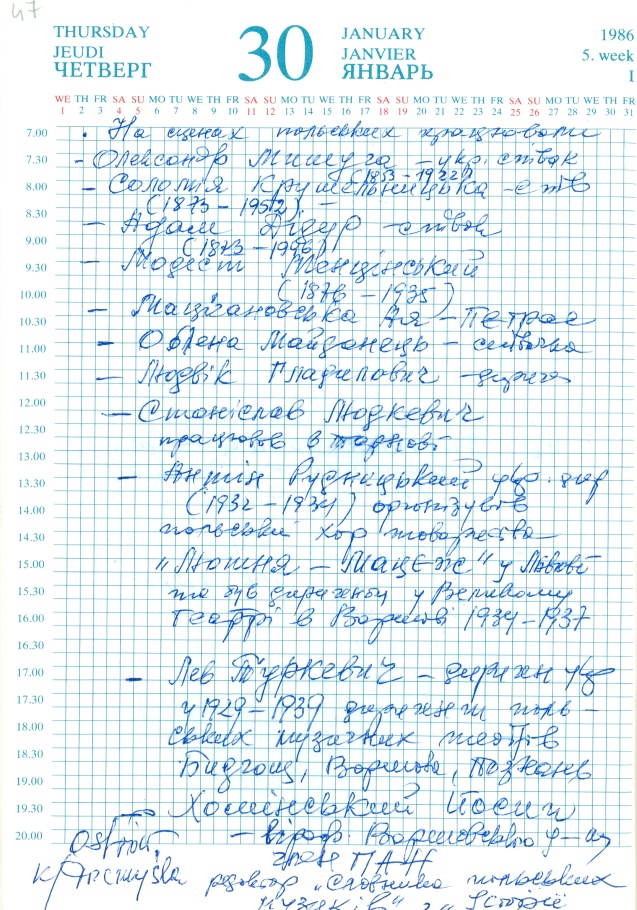 47
THURSDAY
JEUDI
ЧЕТВЕРГ
30
JANUARY
JANVIER
ЯНВАРЬ
1986
5. week
I
WE TH FR SA SU MO TU WE TH FR SA SU MO TU WE TH FR SA SU MO TU WE TH FR SA SU MO TU WE TH FR
1 2 3 4 5 6 7 8 9 10 11 12 13 14 15 16 17 18 19 20 21 22 23 24 25 26 27 28 29 30 31
7.00 . На сценах польських працювали
7.30 - Олександр Мишуга - укр. співак
(1853 - 1922)
8.00 - Соломія Крушельницька - спів
(1873 - 1952). -
8.30 - Адам Дідур - співак
9.00 (1873 - 1946)
9.30 - Модест Менцінський
10.00 (1876 - 1935)
10.30 - Ая - Петрає
11.00 - Олена Майданець - співачка
11.30 - Людвік - дириг
12.00 - Станіслав Людкевич
12.30 працював в Тарнові
13.00
13.30 - Антін Рудницький укр. дир
14.00 (1932 - 1934) організував
14.30 польський хор товариства
15.00 "Лютня - " у Львові
15.30 та був у Великому
16.00 Театрі в Варшаві 1934-1937
16.30
17.00 - Лев Туркевич - укр
17.30 у 1929-1939 поль-
18.00 ських музичних театрів
18.30 Бидгощ, Варшава, Познань
19.00
19.30 Хомінський Йосип
20.00 - проф. Варшавського у-ту
Ostrów
член ПАН
k/Przemyśla редактор "Словника польських
музиків" і "Історії